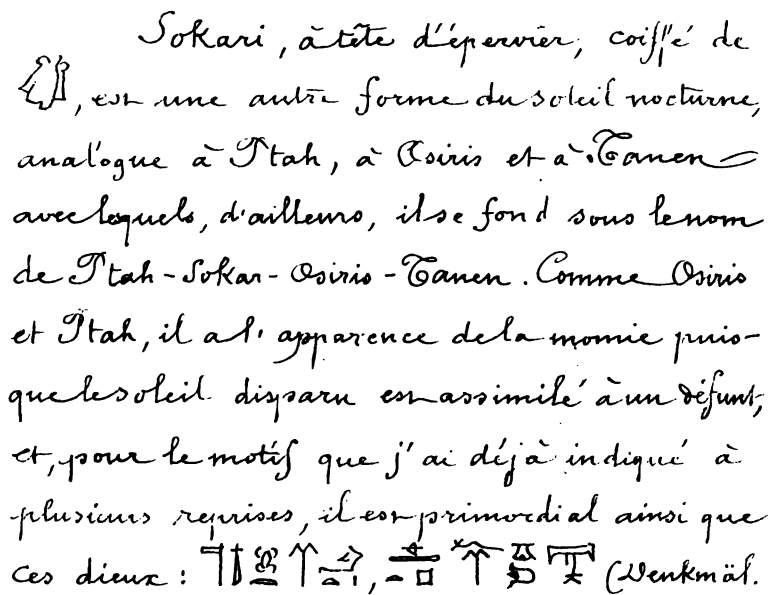 Sokari, à tête d'épervier, coiffé de
, est une autre forme du soleil nocturne,
analogue à Ptah, à Osiris et à Tanen
avec lesquels, d'ailleurs, il se fond sous le nom
de Ptah-Sokar-Osiris-Tanen. Comme Osiris
et Ptah, il a l'apparence de la momie puis-
que le soleil disparu est assimilé à un défunt,
et, pour le motif que j'ai déjà indiqué à
plusieurs reprises, il est primordial ainsi que
ces dieux : (Denkmäl.